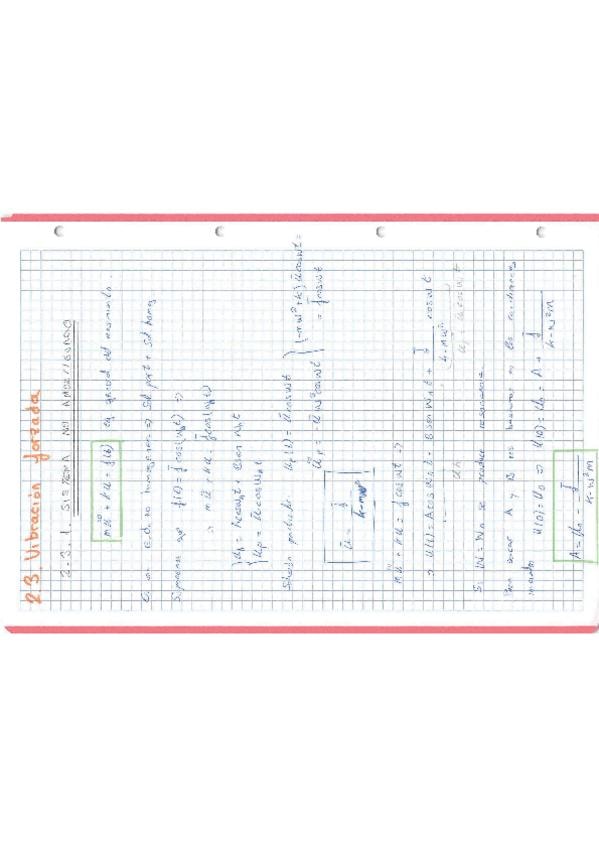 2.3. Vibración forzada
2.3.1. SISTEMA NO AMORTIGUADO
mü + ku = f(t) eq general del movimiento.
Es un e.d. no homogénea ⇒ sol part + sol homog
Suponemos que f(t) = f̄ cos(ωt) ⇒
⇒ mü + ku = f̄ cos(ωt)
{ u_h = A cos ω_n t + B sen ω_n t
{ u_p = ū cos ωt
Solución particular u_p(t) = ū cos ωt } (-mω² + k) ū cos ωt =
ü_p = -ū ω² cos ωt } = f̄ cos ωt
ū = f̄ / (k - mω²)
mü + ku = f̄ cos ωt ⇒
⇒ u(t) = A cos ω_n t + B sen ω_n t + f̄ / (k - mω²) cos ωt
u_h u_p ū cos ωt
Si ω = ω_n se produce resonancia
Para sacar A y B nos basamos en las condiciones
iniciales u(0) = u_0 ⇒ u(0) = u_0 = A + f̄ / (k - ω²m)
A = u_0 - f̄ / (k - ω²m)